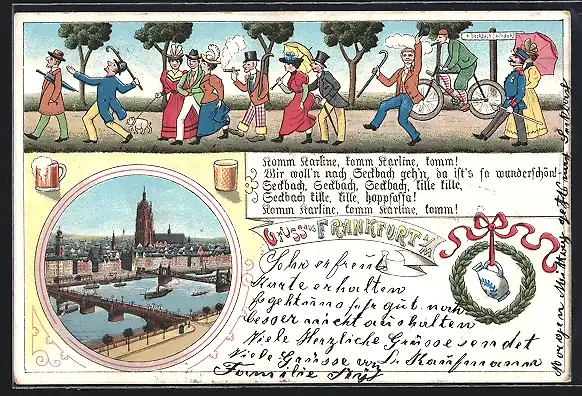 Seckbach
Komm Karline, komm Karline, komm!
Wir woll'n nach Seckbach geh'n, da ist's so wunderschön!
Seckbach, Seckbach, Seckbach, kille kille,
Seckbach kille, kille, hoppsassa!
Komm Karline, komm Karline, komm!
Gruss aus FRANKFURT a/M
Sehr erfreut
Karte erhalten
sehr gut
besser nicht aushalten
Viele Herzliche Grüsse sendet
Viele Grüsse von L. Kaufmann
Familie
Morgen